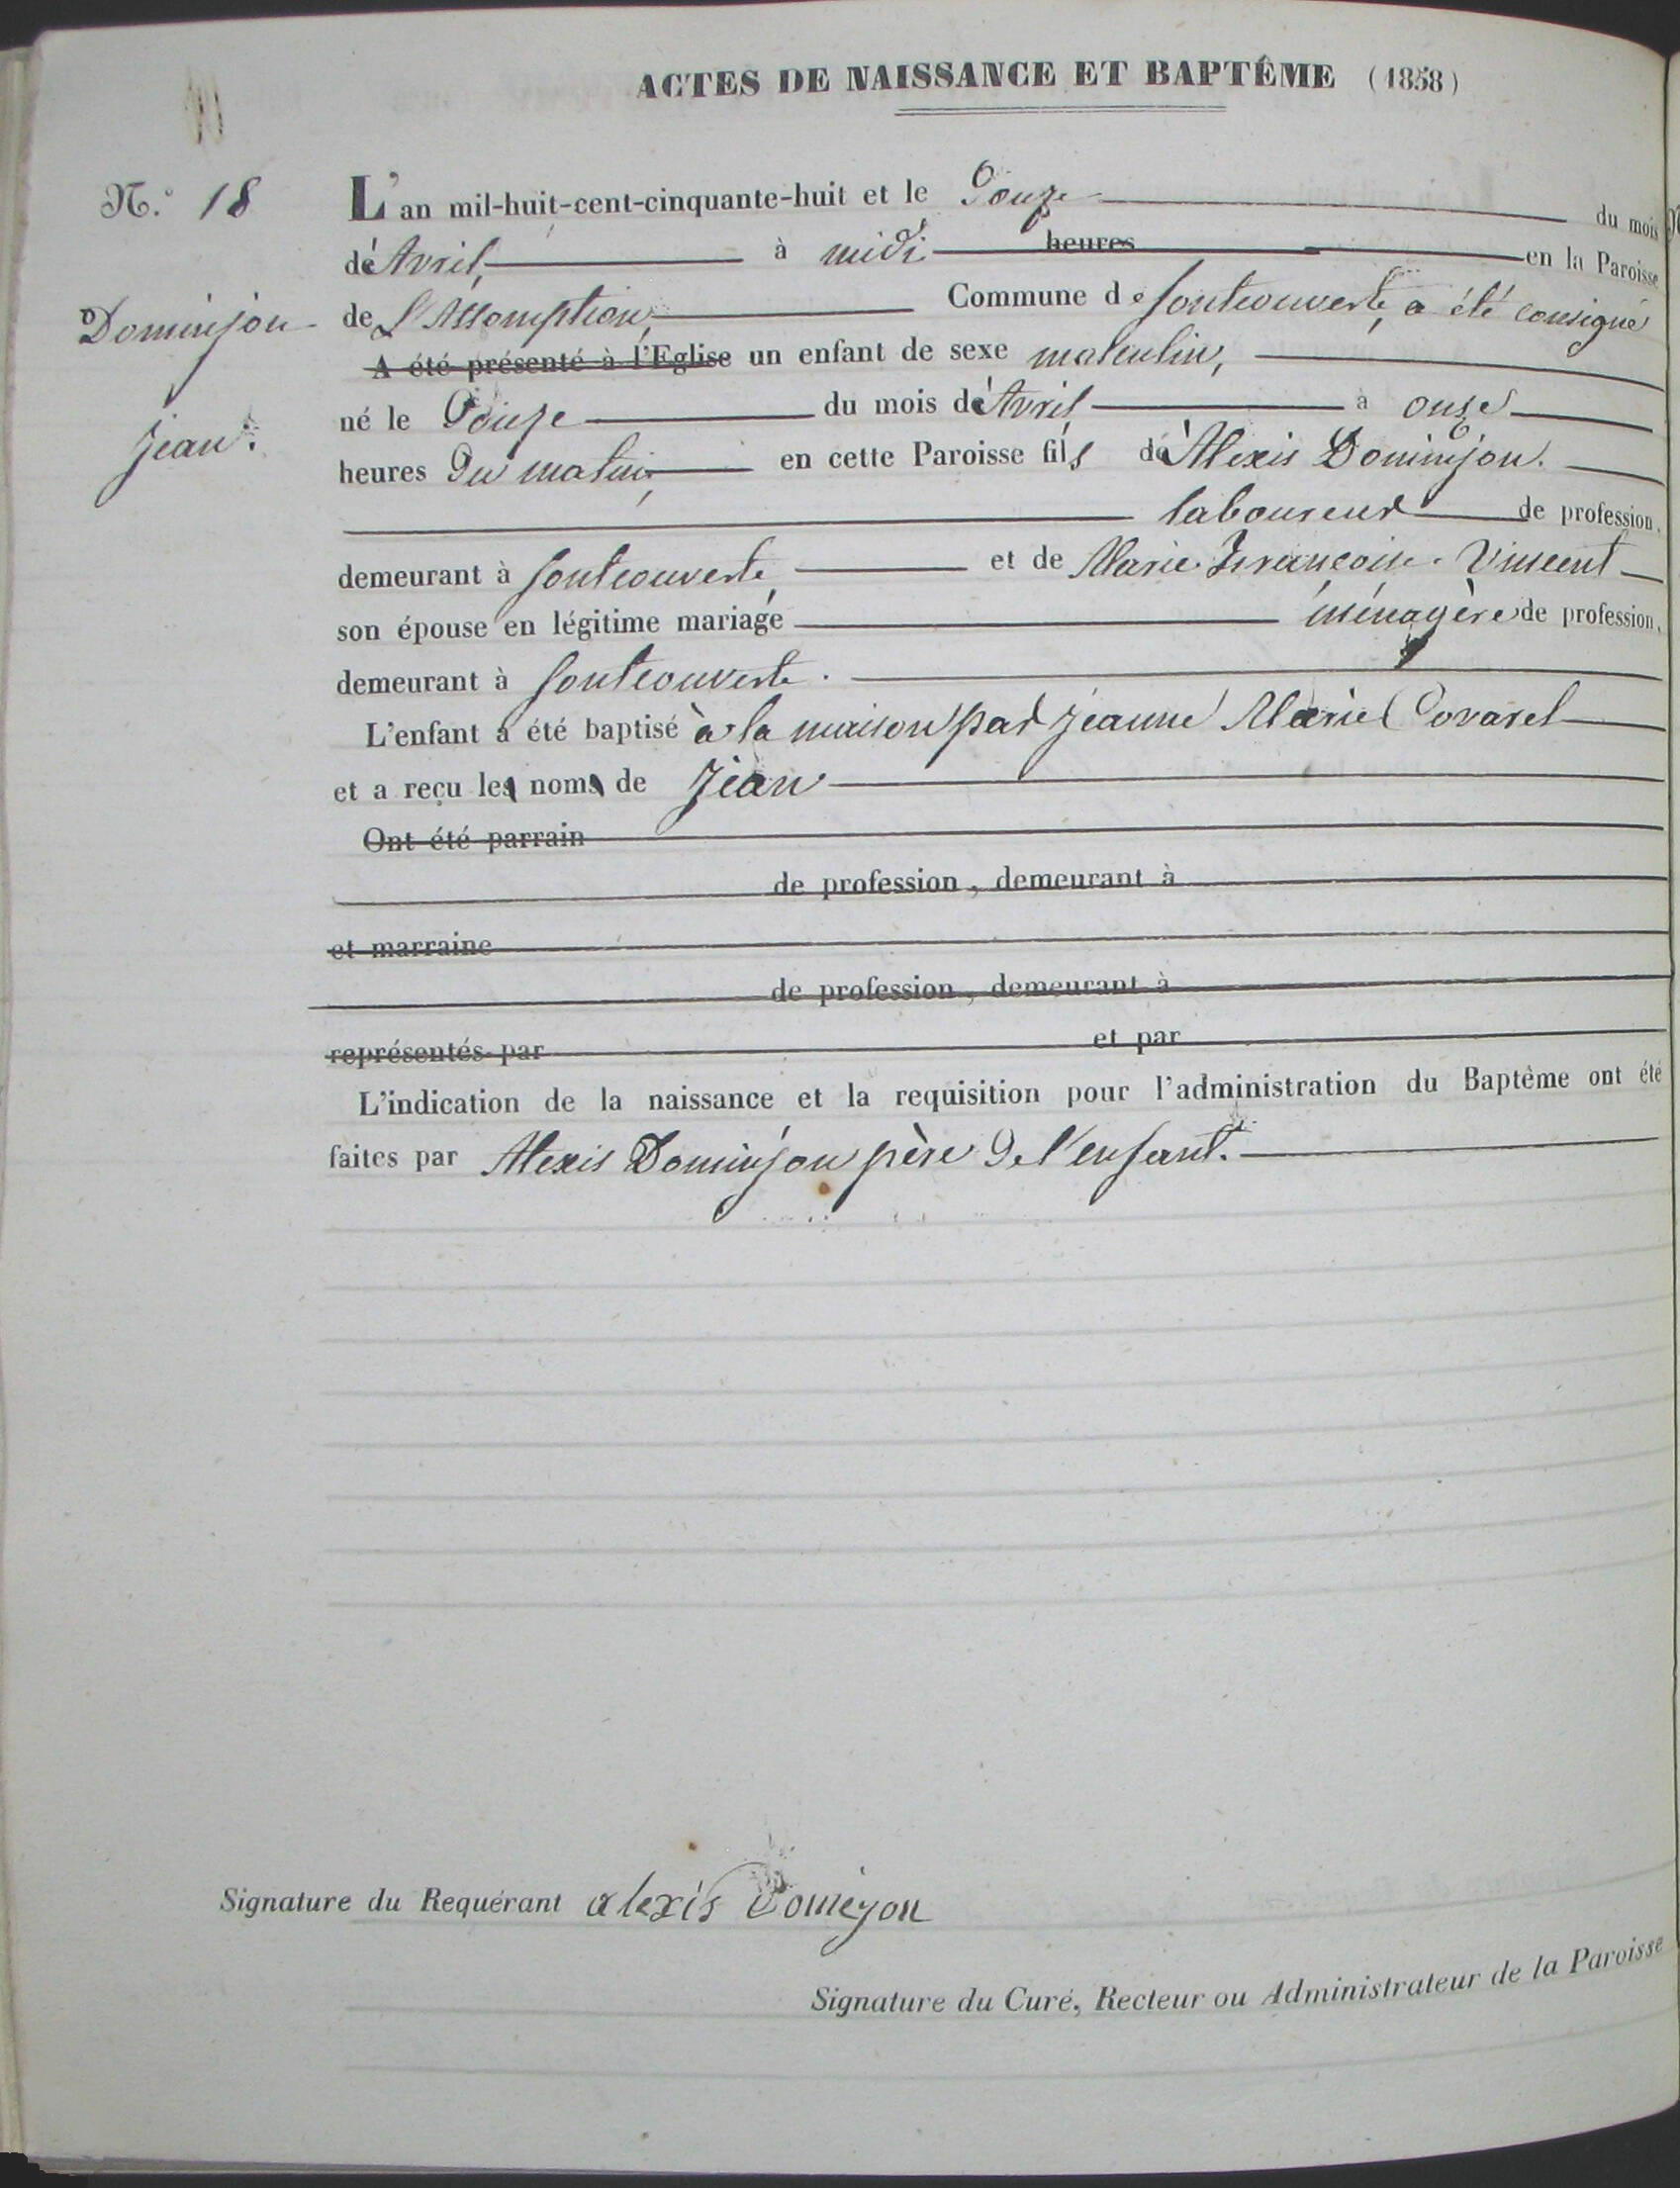 ACTES DE NAISSANCE ET BAPTÊME (1858)
N.° 18
L'an mil-huit-cent-cinquante-huit et le Douze du mois
d'Avril, à midi heures en la Paroisse
Dominjon
de L'Assomption, Commune de Fontcouverte, a été consigné
A été présenté à l'Eglise un enfant de sexe masculin,
né le Douze du mois d'Avril à onze
Jean.
heures du matin, en cette Paroisse fils d'Alexis Dominjon.
laboureur de profession,
demeurant à Fontcouverte, et de Marie Françoise Vincent
son épouse en légitime mariage ménagère de profession,
demeurant à Fontcouverte.
L'enfant a été baptisé à la maison par Jeanne Marie Covarel
et a reçu les noms de Jean
Ont été parrain
de profession, demeurant à
et marraine
de profession, demeurant à
représentés par et par
L'indication de la naissance et la requisition pour l'administration du Baptême ont été
faites par Alexis Dominjon père de l'enfant.
Signature du Requérant alexis Domejon
Signature du Curé, Recteur ou Administrateur de la Paroisse